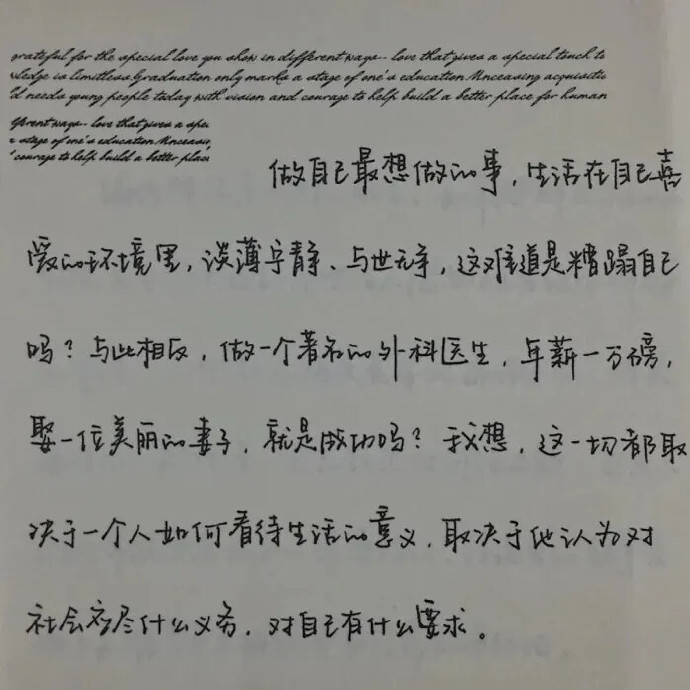 grateful for the special love you show in different ways-- love that gives a special touch to
wledge is limitless.Graduation only marks a stage of one's education.Unceasing acquisitio
ld needs young people today with vision and courage to help build a better place for human
fferent ways-- love that gives a spe
a stage of one's education.Unceasin
courage to help build a better place
做自己最想做的事，生活在自己喜
爱的环境里，淡薄宁静、与世无争，这难道是糟蹋自己
吗？与此相反，做一个著名的外科医生，年薪一万磅，
娶一位美丽的妻子，就是成功吗？我想，这一切都取
决于一个人如何看待生活的意义，取决于他认为对
社会应尽什么义务，对自己有什么要求。